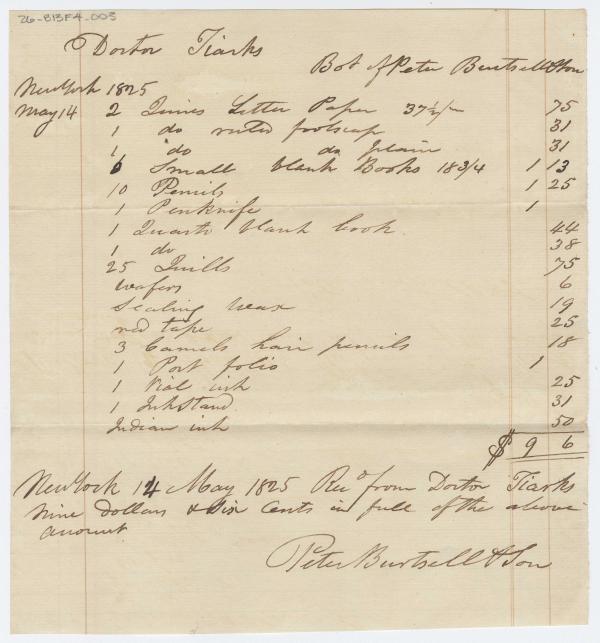 26-B13F4-003
Doctor Tiarks
Bot of Peter Burtsell & Son
New York 1825
May 14 2 Quires Letter Paper 37½ 75
1 do ruled foolscap 31
1 do do plain 31
6 Small blank Books 18 3/4 1 13
10 Pencils 1 25
1 Penknife 1
1 Quarto blank book. 44
1 do 38
25 Quills 75
Wafers 6
Sealing Wax 19
red tape 25
3 Camels hair pencils 18
1 Port folio 1
1 Vial ink 25
1 InkStand. 31
Indian ink 50
$ 9 6
New York 14 May 1825 Recd from Doctor Tiarks
nine dollars & Six Cents in full of the above
amount
Peter Burtsell & Son